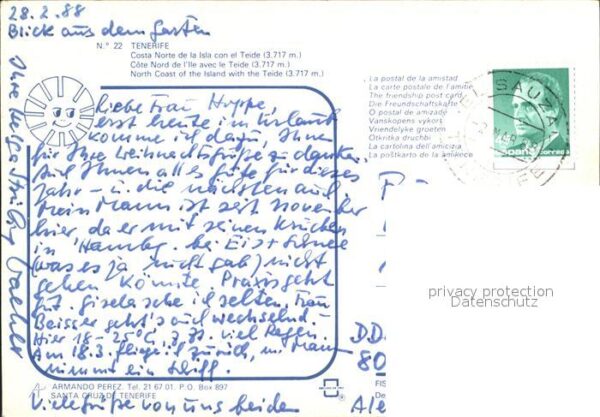 28.2.88
Blick aus dem Garten
N.° 22 TENERIFE
Costa Norte de la Isla con el Teide (3.717 m.)
Côte Nord de l'Ile avec le Teide (3.717 m.)
North Coast of the Island with the Teide (3.717 m.)
La postal de la amistad
La carte postale de Famille
The friendship post card
Die Freundschaftskarte
O postal de amizade
Vanskopens vykort
Vriendelyke groeten
Otkritka druchbi
La cartolina dell'amicizia
La poştkarto de la amikece
España correos
Liebe Frau Hoppe,
erst heute im Urlaub
komme ich dazu, Ihnen
für Ihre Weihnachtsgrüße zu danken.
Ihnen alles Gute für dieses
Jahr - u. die nächsten auch
Mein Mann ist seit November
hier da er mit seinen Krücken
in Hambg. bei Eis + Schnee
(was es ja nicht gab) nicht
gehen könnte. Praxis geht
gut. Gisela sehe ich selten, Frau
Beisser geht's auch wechselnd.
Hier 18-25°C, viel Regen.
Am 18.3. fliege ich zurück, m. Mann
nimmt ein Schiff.
Ihre
ARMANDO PEREZ. Tel. 21 67 01. P.O. Box 897
SANTA CRUZ DE TENERIFE
Viele Grüße von uns beiden
DD
80
FIS
Ale
privacy protection
Datenschutz